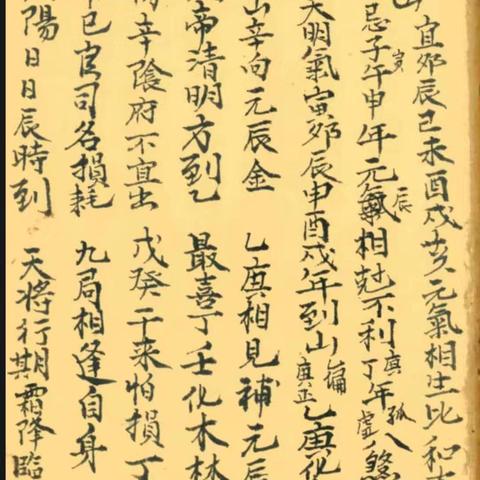 山宜卯辰巳未酉戌亥元氣相生比和
忌子寅午申年元氣辰相尅不利丁庚年孤虛八煞
大明氣寅卯辰申酉戌年到山偏庚正乙庚化
山辛向元辰金 乙庚相見補元辰
帝清明方到乙 最喜丁壬化木林
辛陰府不宜出 戊癸干来怕損丁
巳官司名損耗 九局相逢自身
陽日日辰時到 天將行期霜降臨